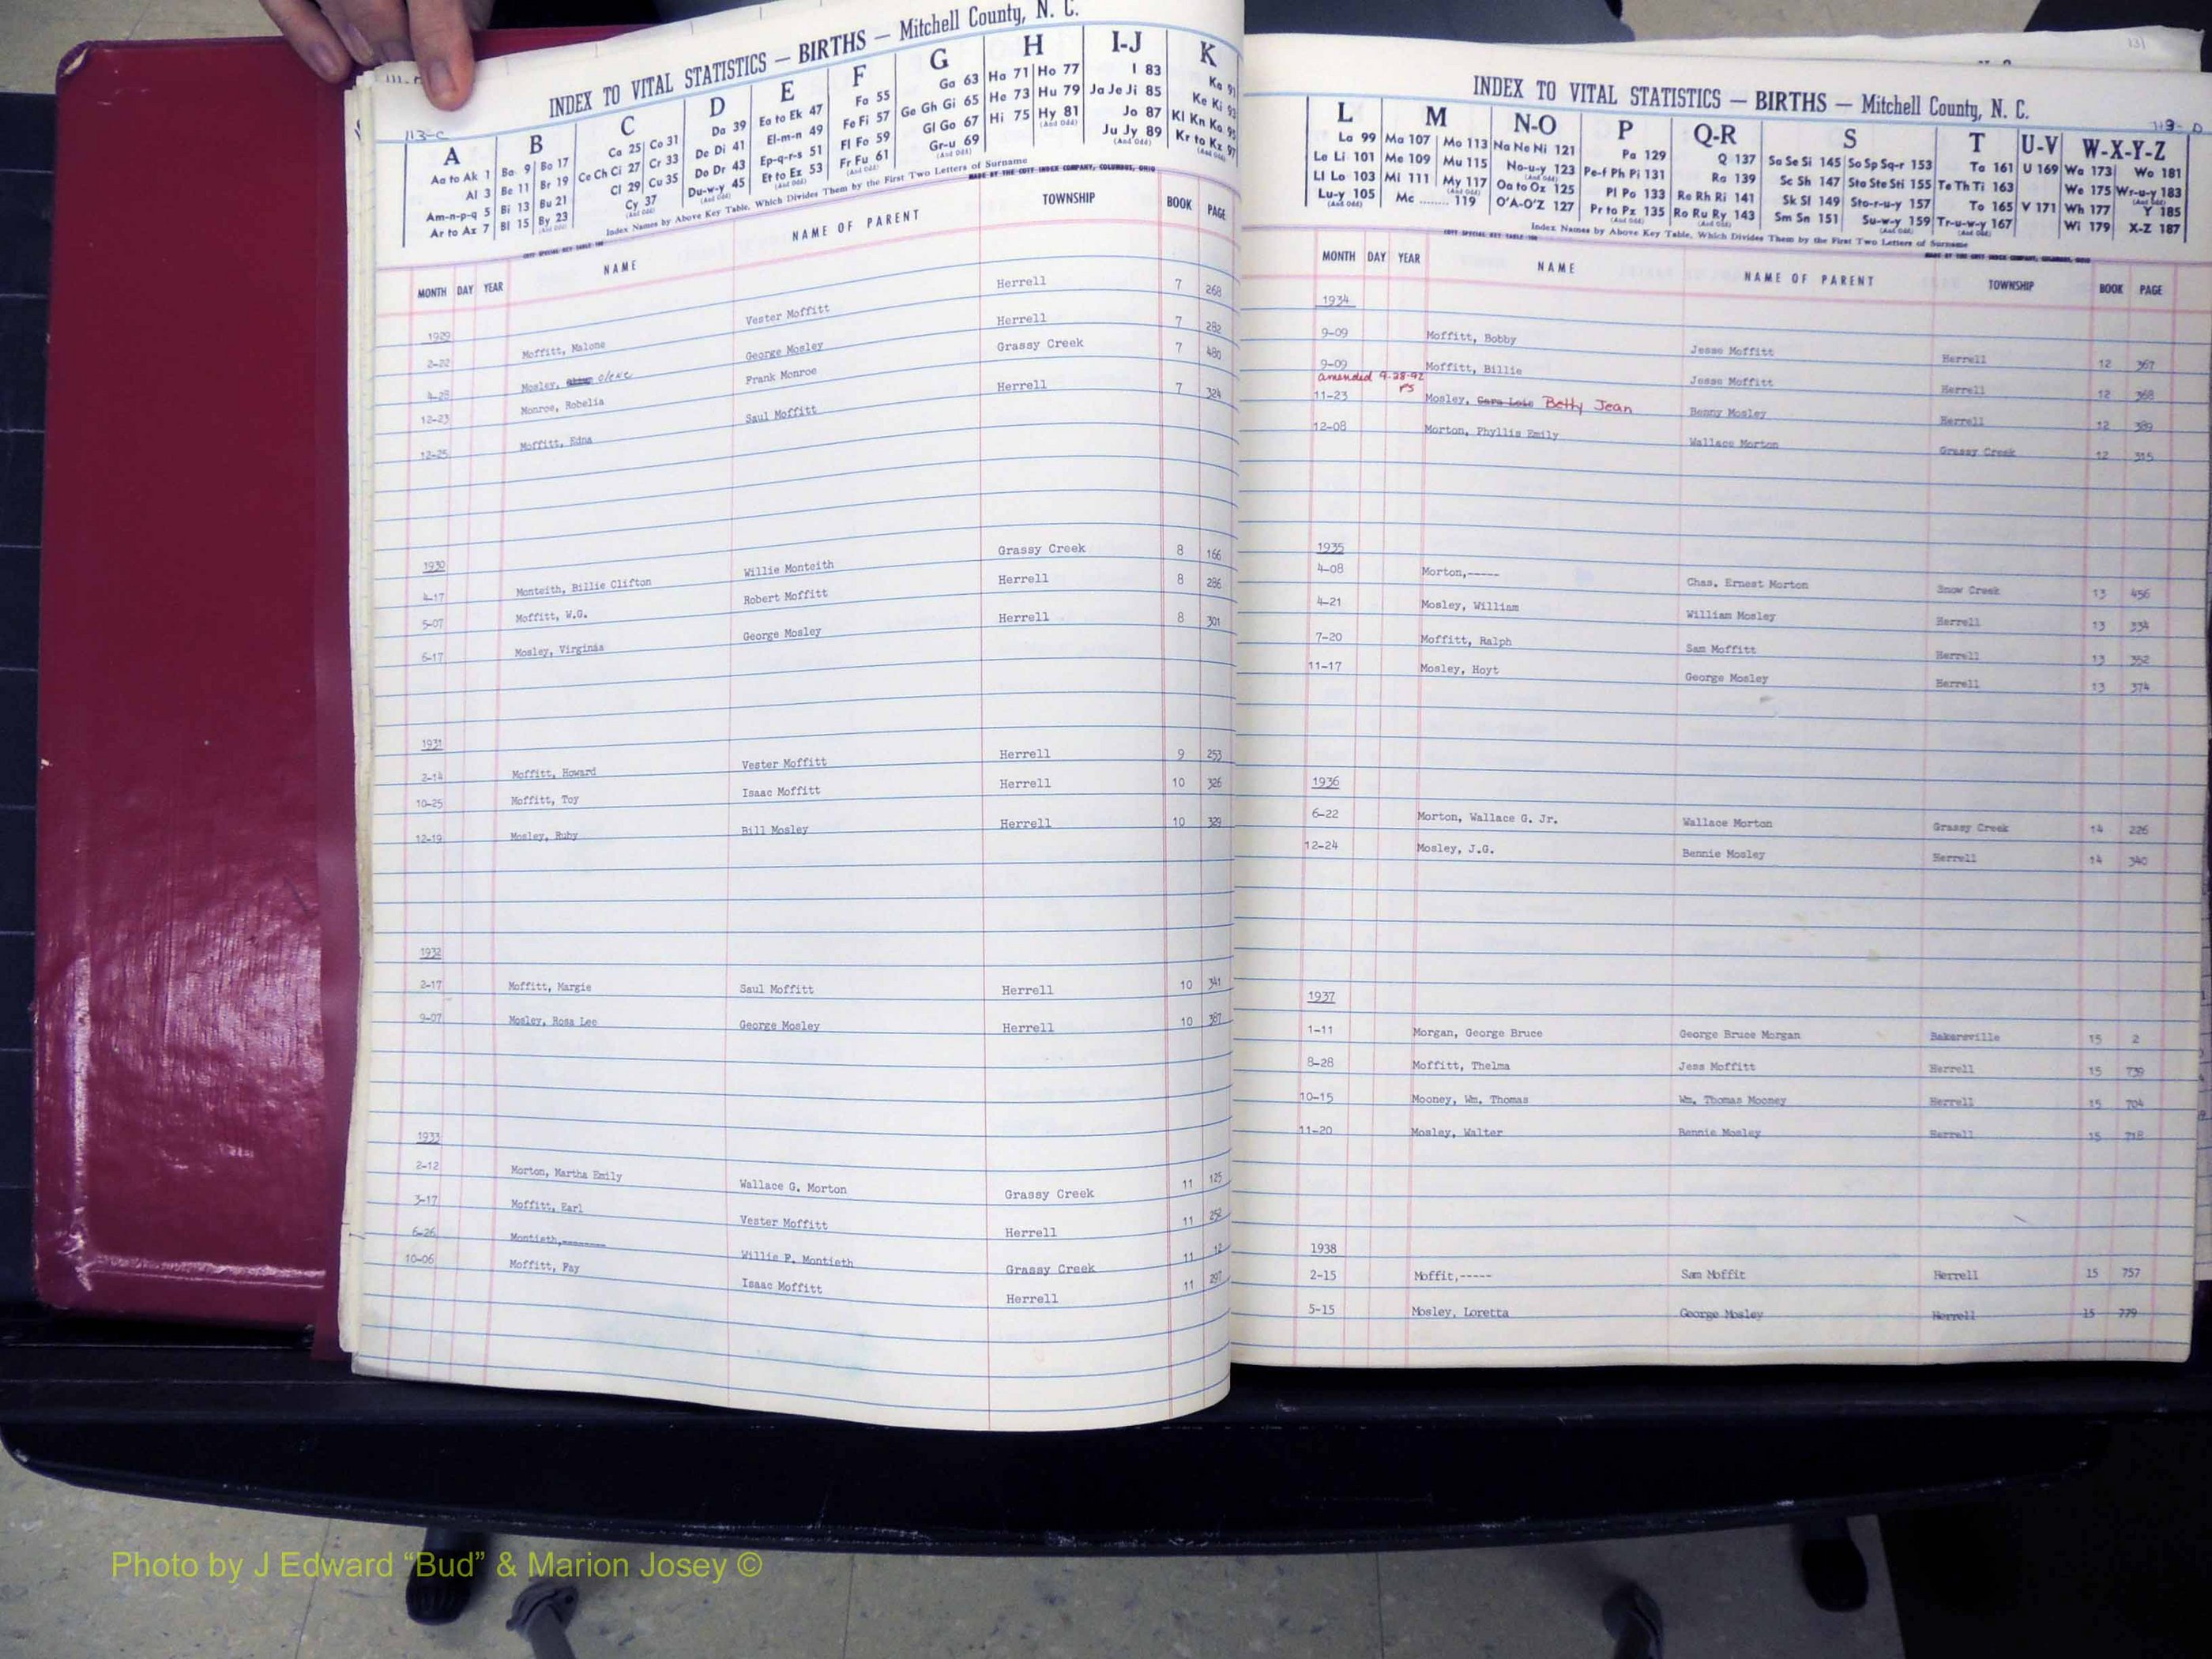 INDEX TO VITAL STATISTICS — BIRTHS — Mitchell County, N. C.
113-C
A B C D E F G H I-J K
Aa to Ak 1 Ba 9 Bo 17 Ca 25 Co 31 Da 39 Ea to Ek 47 Fa 55 Ga 63 Ha 71 Ho 77 I 83 Ka 91
Al 3 Be 11 Br 19 Ce Ch Ci 27 Cr 33 De Di 41 El-m-n 49 Fe Fi 57 Ge Gh Gi 65 He 73 Hu 79 Ja Je Ji 85 Ke Ki 93
Am-n-p-q 5 Bi 13 Bu 21 Cl 29 Cu 35 Do Dr 43 Ep-q-r-s 51 Fl Fo 59 Gl Go 67 Hi 75 Hy 81 Jo 87 Kl Kn Ko 95
Ar to Az 7 Bl 15 By 23 Cy 37 Du-w-y 45 Et to Ez 53 Fr Fu 61 Gr-u 69 Ju Jy 89 Kr to Kz 97
Index Names by Above Key Table, Which Divides Them by the First Two Letters of Surname
MADE BY THE COTT INDEX COMPANY, COLUMBUS, OHIO
MONTH DAY YEAR NAME NAME OF PARENT TOWNSHIP BOOK PAGE
1929
2-22 Moffitt, Malone Vester Moffitt Herrell 7 268
4-28 Mosley, Clene George Mosley Herrell 7 282
12-23 Monroe, Robelia Frank Monroe Grassy Creek 7 480
12-25 Moffitt, Edna Saul Moffitt Herrell 7 324
1930
4-17 Monteith, Billie Clifton Willie Monteith Grassy Creek 8 166
5-07 Moffitt, W.G. Robert Moffitt Herrell 8 286
6-17 Mosley, Virginia George Mosley Herrell 8 301
1931
2-14 Moffitt, Howard Vester Moffitt Herrell 9 253
10-25 Moffitt, Toy Isaac Moffitt Herrell 10 326
12-19 Mosley, Ruby Bill Mosley Herrell 10 329
1932
2-17 Moffitt, Margie Saul Moffitt Herrell 10 341
9-07 Mosley, Rosa Lee George Mosley Herrell 10 387
1933
2-12 Morton, Martha Emily Wallace G. Morton Grassy Creek 11 125
3-17 Moffitt, Earl Vester Moffitt Herrell 11 252
6-26 Montieth,-------- Willie P. Montieth Grassy Creek 11 12
10-06 Moffitt, Fay Isaac Moffitt Herrell 11 297
INDEX TO VITAL STATISTICS — BIRTHS — Mitchell County, N. C.
L M N-O P Q-R S T U-V W-X-Y-Z
La 99 Ma 107 Mo 113 Na Ne Ni 121 Pa 129 Q 137 Sa Se Si 145 So Sp Sq-r 153 Ta 161 U 169 Wa 173 Wo 181
Le Li 101 Me 109 Mu 115 No-u-y 123 Pe-f Ph Pi 131 Ra 139 Sc Sh 147 Sta Ste Sti 155 Te Th Ti 163 We 175 Wr-u-y 183
Ll Lo 103 Mi 111 My 117 Oa to Oz 125 Pl Po 133 Re Rh Ri 141 Sk Sl 149 Sto-r-u-y 157 To 165 V 171 Wh 177 Y 185
Lu-y 105 Mc ........ 119 O'A-O'Z 127 Pr to Pz 135 Ro Ru Ry 143 Sm Sn 151 Su-w-y 159 Tr-u-w-y 167 Wi 179 X-Z 187
Index Names by Above Key Table, Which Divides Them by the First Two Letters of Surname
MADE BY THE COTT INDEX COMPANY, COLUMBUS, OHIO
MONTH DAY YEAR NAME NAME OF PARENT TOWNSHIP BOOK PAGE
1934
9-09 Moffitt, Bobby Jesse Moffitt Herrell 12 367
9-09 Moffitt, Billie Jesse Moffitt Herrell 12 368
amended 9-28-92 PS
11-23 Mosley, Cora Lois Betty Jean Benny Mosley Herrell 12 389
12-08 Morton, Phyllis Emily Wallace Morton Grassy Creek 12 315
1935
4-08 Morton,----- Chas. Ernest Morton Snow Creek 13 456
4-21 Mosley, William William Mosley Herrell 13 334
7-20 Moffitt, Ralph Sam Moffitt Herrell 13 352
11-17 Mosley, Hoyt George Mosley Herrell 13 374
1936
6-22 Morton, Wallace G. Jr. Wallace Morton Grassy Creek 14 226
12-24 Mosley, J.G. Bennie Mosley Herrell 14 340
1937
1-11 Morgan, George Bruce George Bruce Morgan Bakersville 15 2
8-28 Moffitt, Thelma Jess Moffitt Herrell 15 739
10-15 Mooney, Wm. Thomas Wm. Thomas Mooney Herrell 15 704
11-20 Mosley, Walter Bennie Mosley Herrell 15 718
1938
2-15 Moffit,----- Sam Moffit Herrell 15 757
5-15 Mosley, Loretta George Mosley Herrell 15 779
Photo by J Edward “Bud” & Marion Josey ©